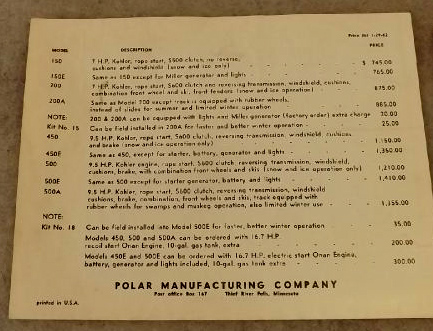 Price list 1-29-62
MODEL DESCRIPTION PRICE
150 7 H.P. Kohler, rope start, S600 clutch, no reverse,
cushions and windshield (snow and ice only) - $ 745.00
150E Same as 150 except for Miller generator and lights - 765.00
200 7 H.P. Kohler, rope start, S600 clutch and reversing transmission, windshield, cushions,
combination front wheel and ski, front fenders (snow and ice operation) - 875.00
200A Same as Model 200 except track is equipped with rubber wheels,
instead of slides for summer and limited winter operation - 865.00
NOTE: 200 & 200A can be equipped with lights and Miller generator (factory order) extra charge 20.00
Kit No. 15 Can be field installed in 200A for faster and better winter operation - 25.00
450 9.5 H.P. Kohler, rope start, S600 clutch, reversing transmission, windshield, cushions
and brake (snow and ice operation only) - 1,150.00
450E Same as 450, except for starter, battery, generator and lights - 1,350.00
500 9.5 H.P. Kohler engine, rope start, S600 clutch, reversing transmission, windshield,
cushions, brake, with combination front wheels and skis (snow and ice operation only) 1,210.00
500E Same as 500 except for starter generator, battery and lights - 1,410.00
500A 9.5 H.P. Kohler, rope start, S600 clutch, reversing transmission, windshield
cushions, brake, combination, front wheels and skis, track equipped with
rubber wheels for swamps and muskeg operation, also limited winter use - 1,255.00
NOTE:
Kit No. 18 Can be field installed into Model 500E for faster, better winter operation - 35.00
Models 450, 500 and 500A can be ordered with 16.7 H.P.
recoil start Onan Engine, 10-gal. gas tank, extra - 200.00
Models 450E and 500E can be ordered with 16.7 H.P. electric start Onan Engine,
battery, generator and lights included, 10-gal. gas tank extra - 300.00
POLAR MANUFACTURING COMPANY
Post office Box 167 Thief River Falls, Minnesota
printed in U.S.A.